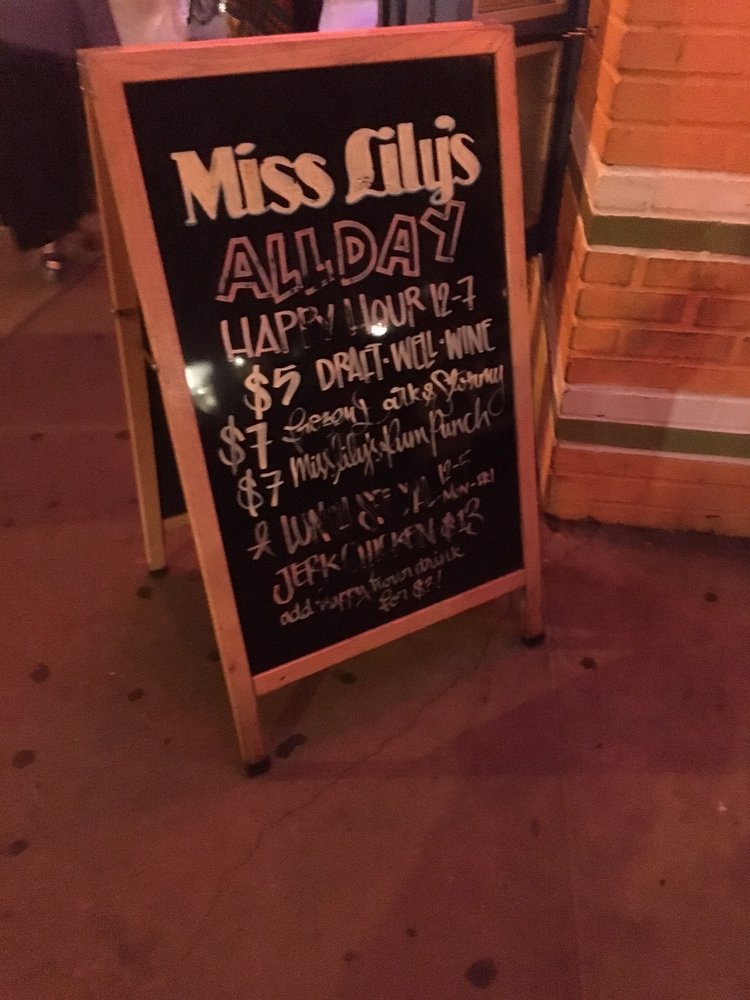 Miss Lily's
ALL DAY
HAPPY HOUR 12-7
$5 DRAFT·WELL·WINE
$7 & Stormy
$7 Miss Lily's Rum Punch
LUNCH SPECIAL 12-5
MON-FRI
JERK CHICKEN $13
add happy hour drink
for $3!